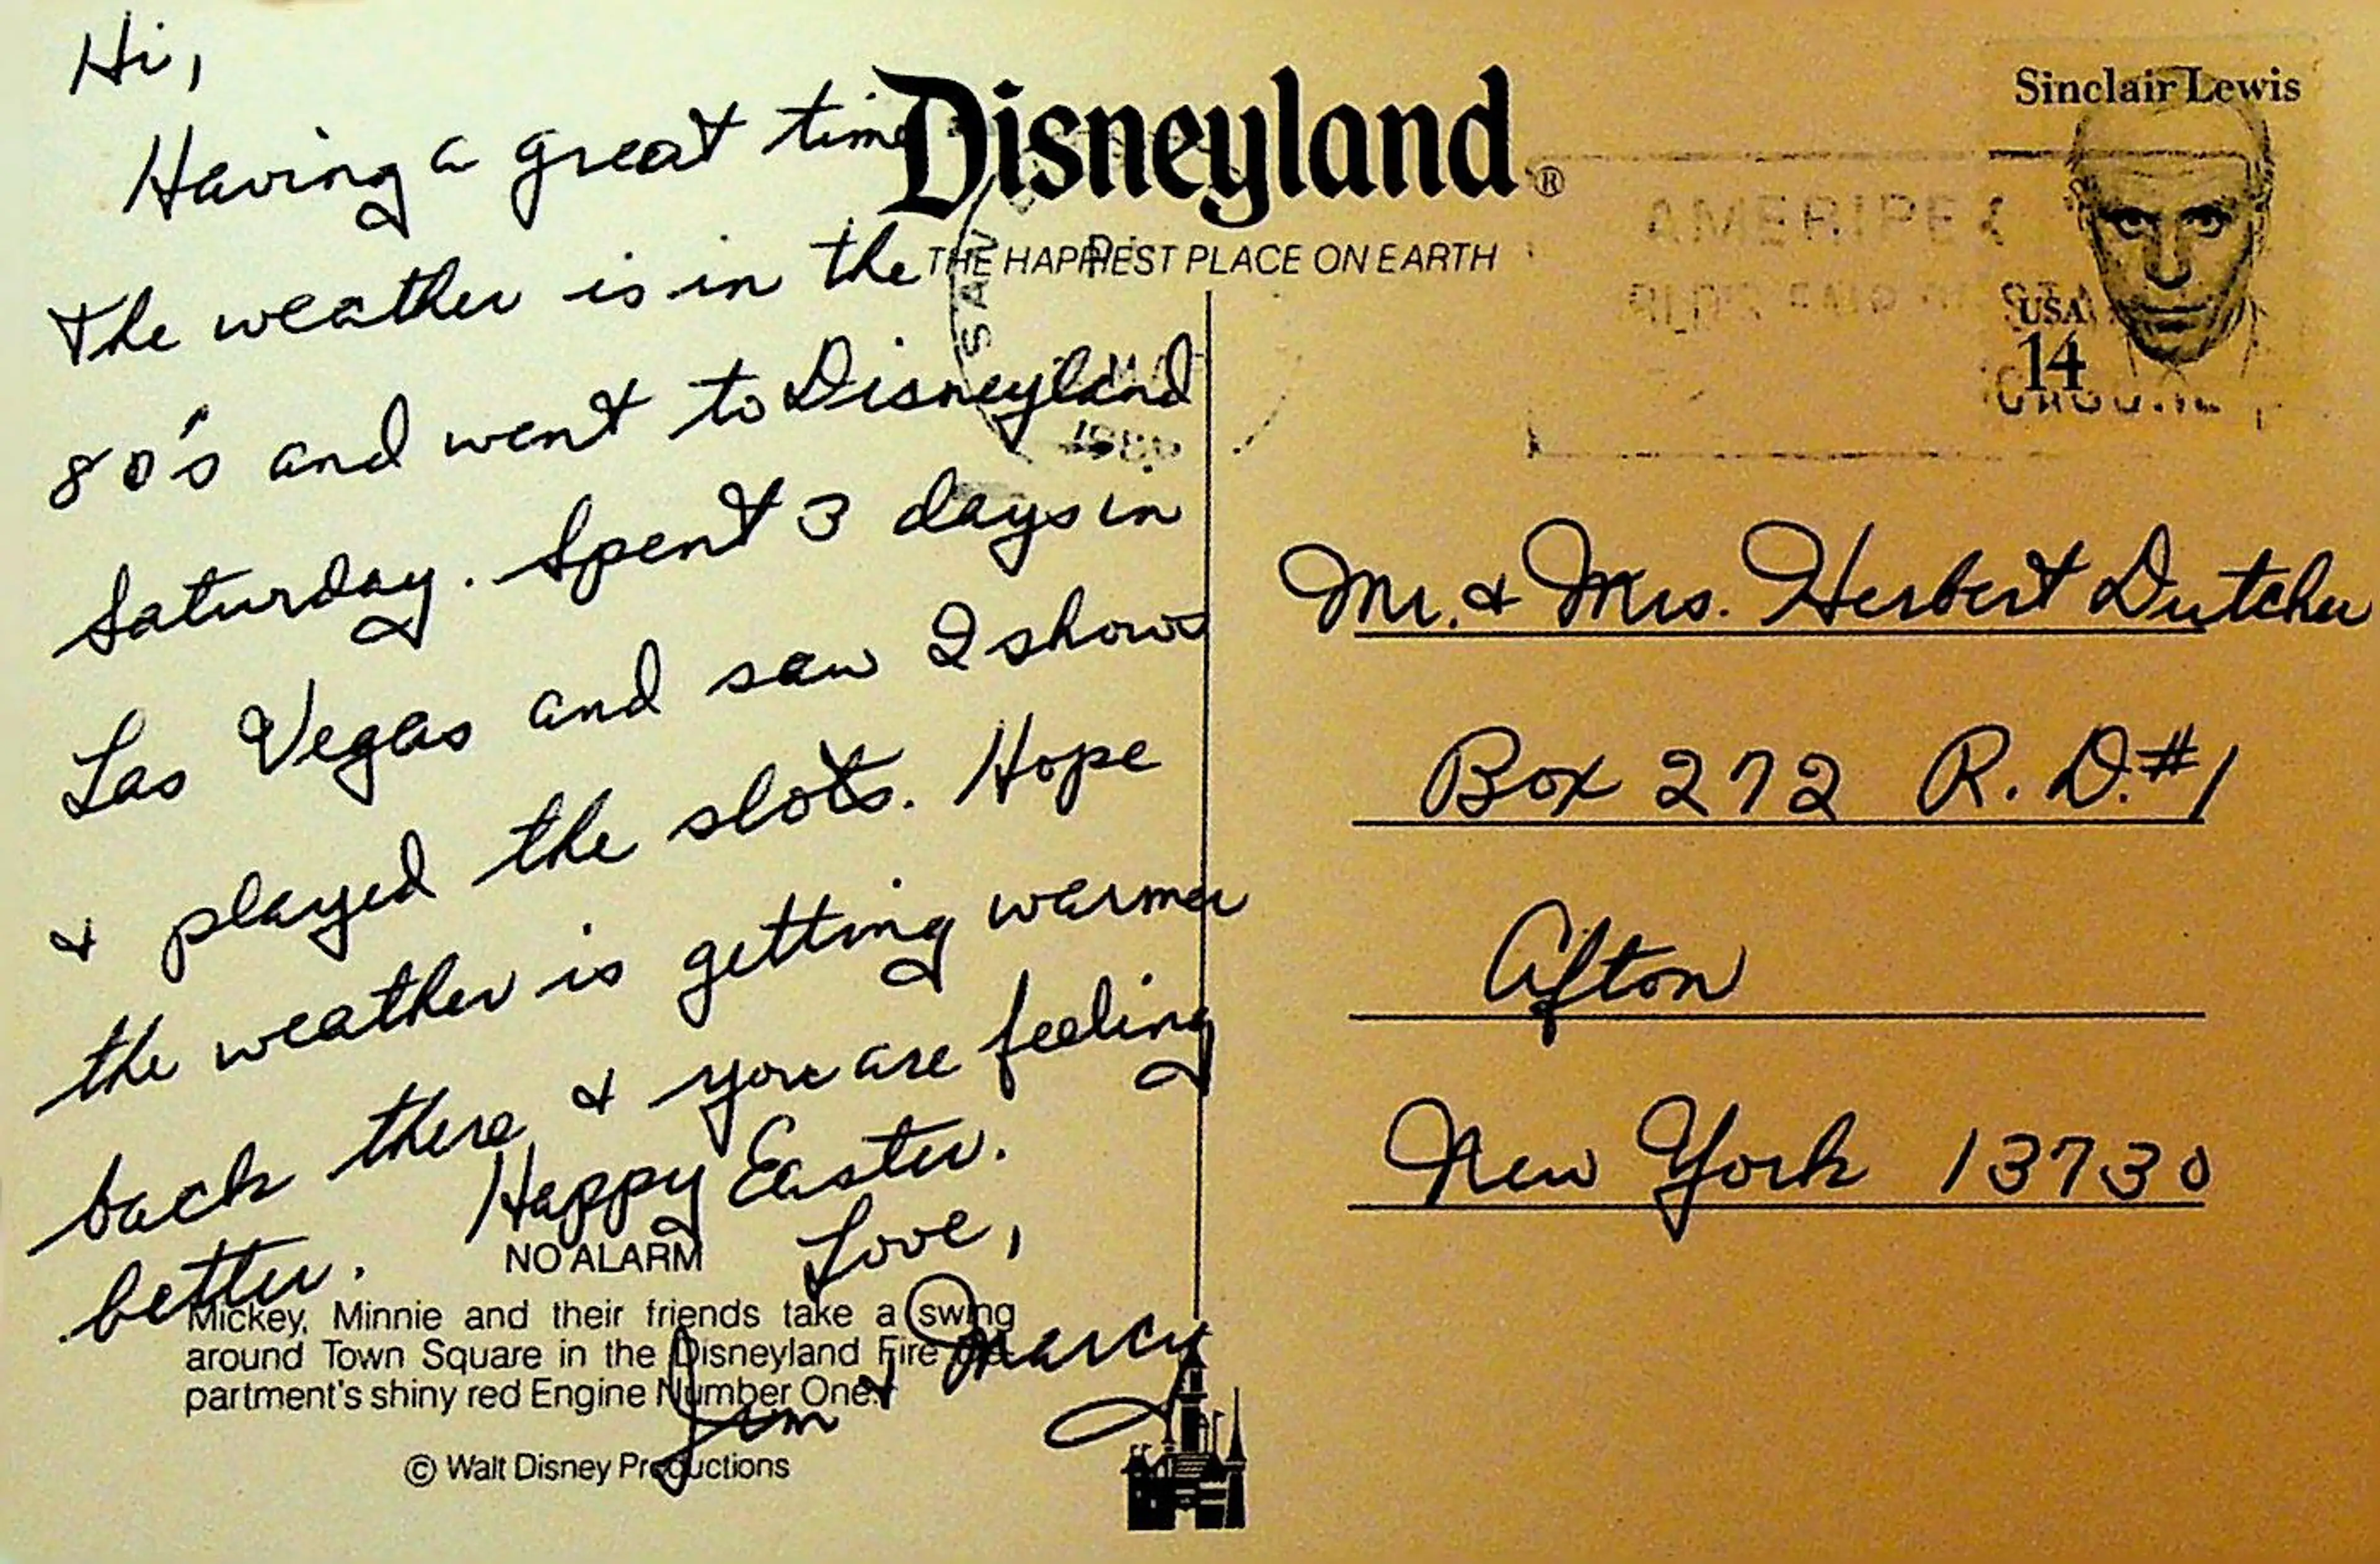 Hi,
Having a great time
The weather is in the
80's and went to Disneyland
Saturday. Spent 3 days in
Las Vegas and saw 2 shows
& played the slots. Hope
the weather is getting warmer
back there & you are feeling
better. Happy Easter.
Love,
Jim & Marcy
NO ALARM
Mickey, Minnie and their friends take a swing
around Town Square in the Disneyland Fire De-
partment's shiny red Engine Number One.
© Walt Disney Productions
Disneyland®
THE HAPPIEST PLACE ON EARTH
SAN
AMERIPEX
Sinclair Lewis
USA
14
Mr. & Mrs. Herbert Dutcher
Box 272 R. D. #1
Afton
New York 13730